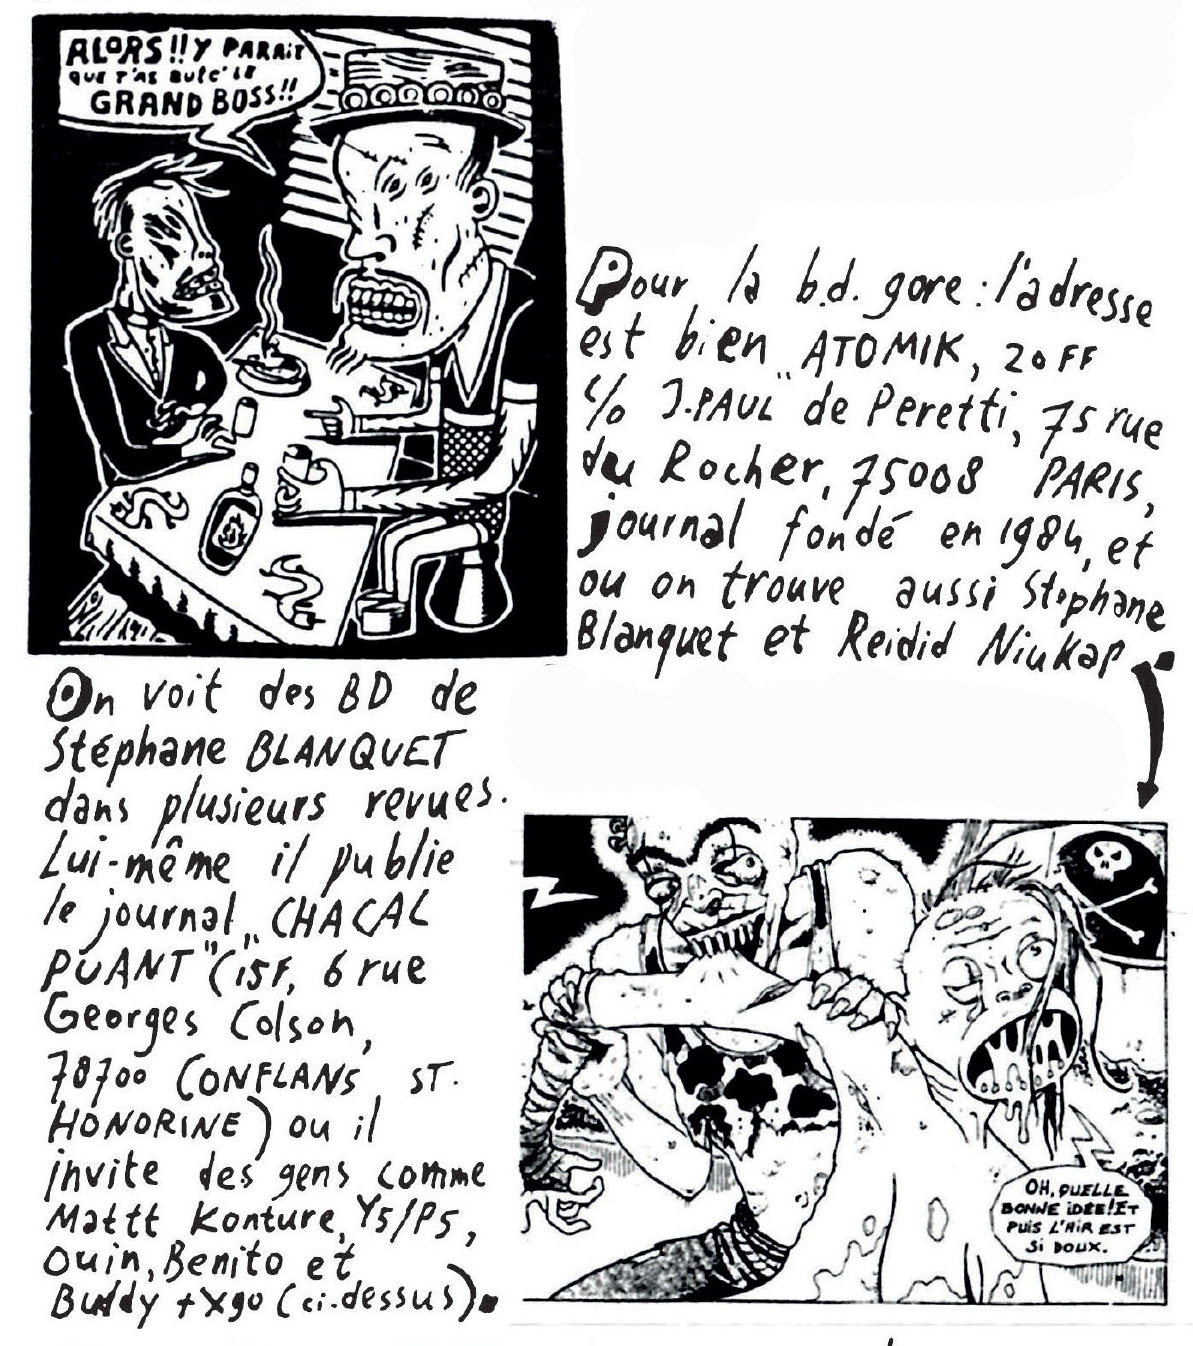 ALORS!!Y PARAIT
QUE T'AS BUTE' LE
GRAND BOSS!!
Pour la b.d. gore: l'adresse
est bien "ATOMIK, 20FF
c/o J.PAUL" de Peretti, 75 rue
du Rocher, 75008 PARIS,
journal fondé en 1984, et
ou on trouve aussi Stéphane
Blanquet et Reidid Niukap
On voit des BD de
Stéphane BLANQUET
dans plusieurs revues.
Lui-même il publie
le journal "CHACAL
PUANT" (15F, 6 rue
Georges Colson,
78700 CONFLANS ST.
HONORINE) ou il
invite des gens comme
Mattt Konture, Y5/P5,
Ouin, Benito et
Buddy +Xgo (ci-dessus).
OH, QUELLE
BONNE IDÉE! ET
PUIS L'AIR EST
SI DOUX.